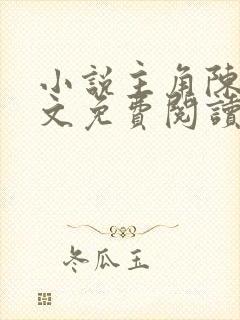 小說主角陳
文免費閱讀
冬瓜玉